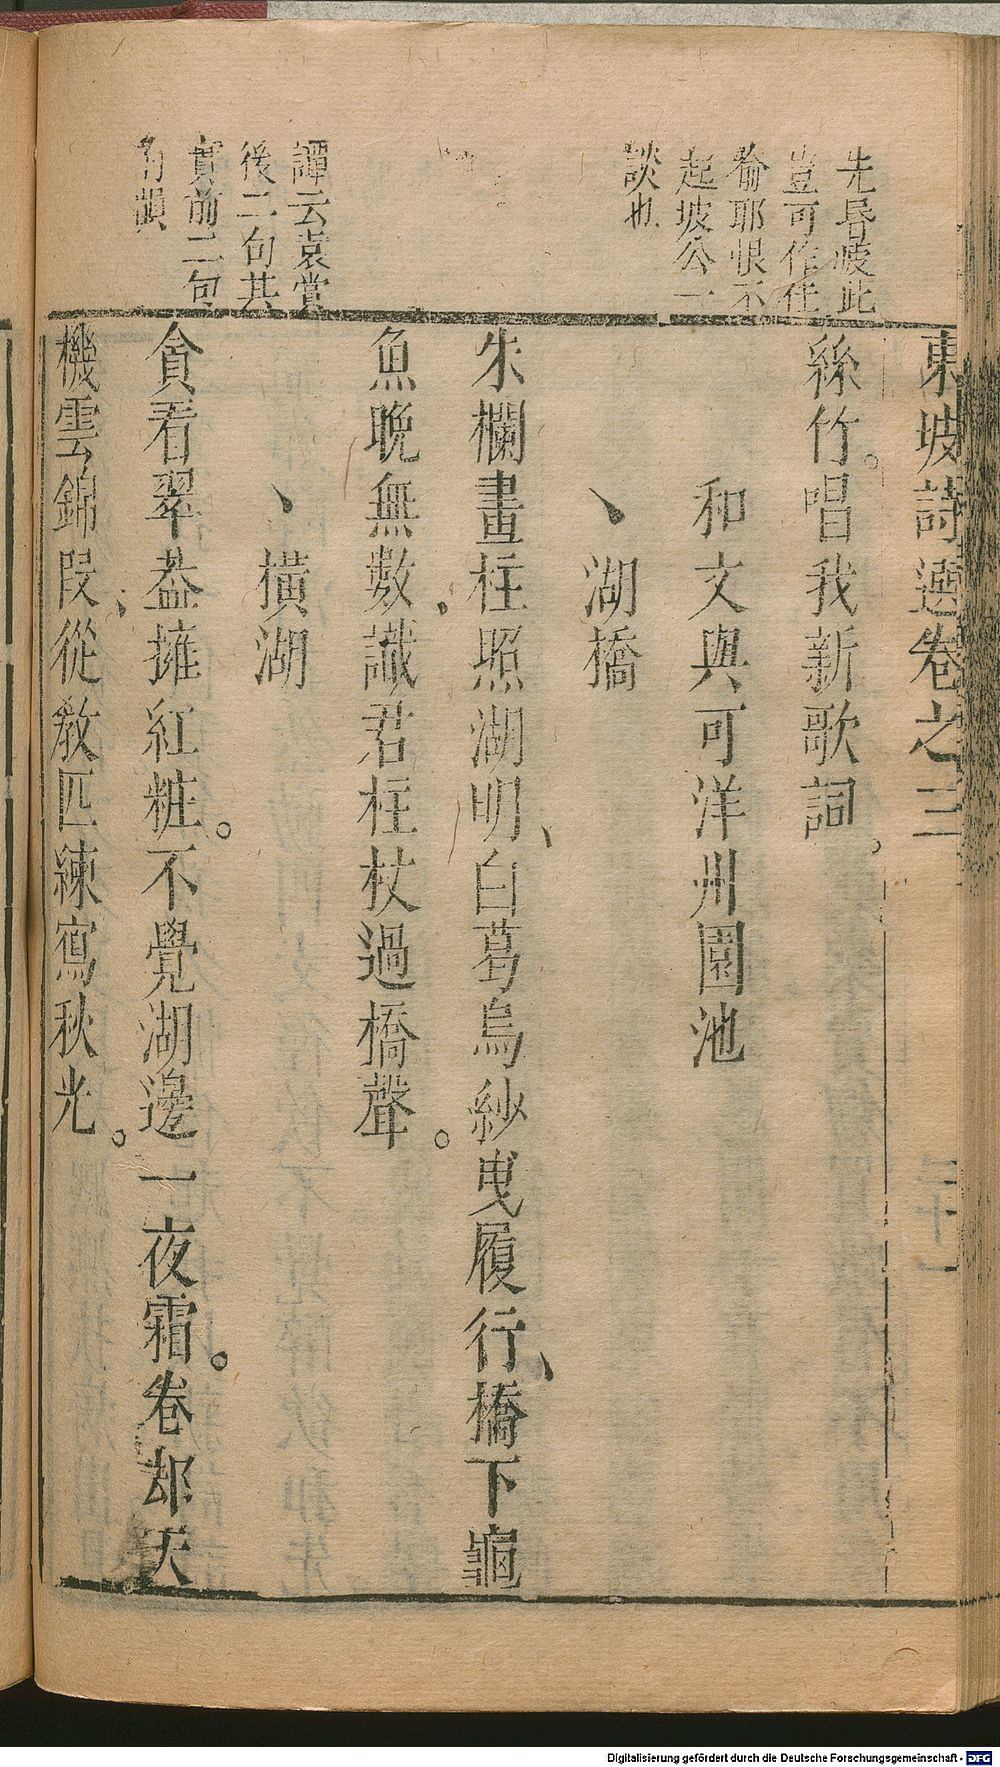 東坡詩選卷之三
絲竹。唱我新歌詞。
和文與可洋州園池
湖橋
朱欄畫柱照湖明、白葛烏紗曳履行、橋下龜
魚晚無數、識君柱杖過橋聲。
橫湖
貪看翠葢擁紅粧。不覺湖邊一夜霜。卷却天
機雲錦段、從教匹練寫秋光。
此
豈可作任
耶恨不
起坡公一
談也
譚云袁賞
後二句其
實前二句
有韻
Digitalisierung gefördert durch die Deutsche Forschungsgemeinschaft - DFG